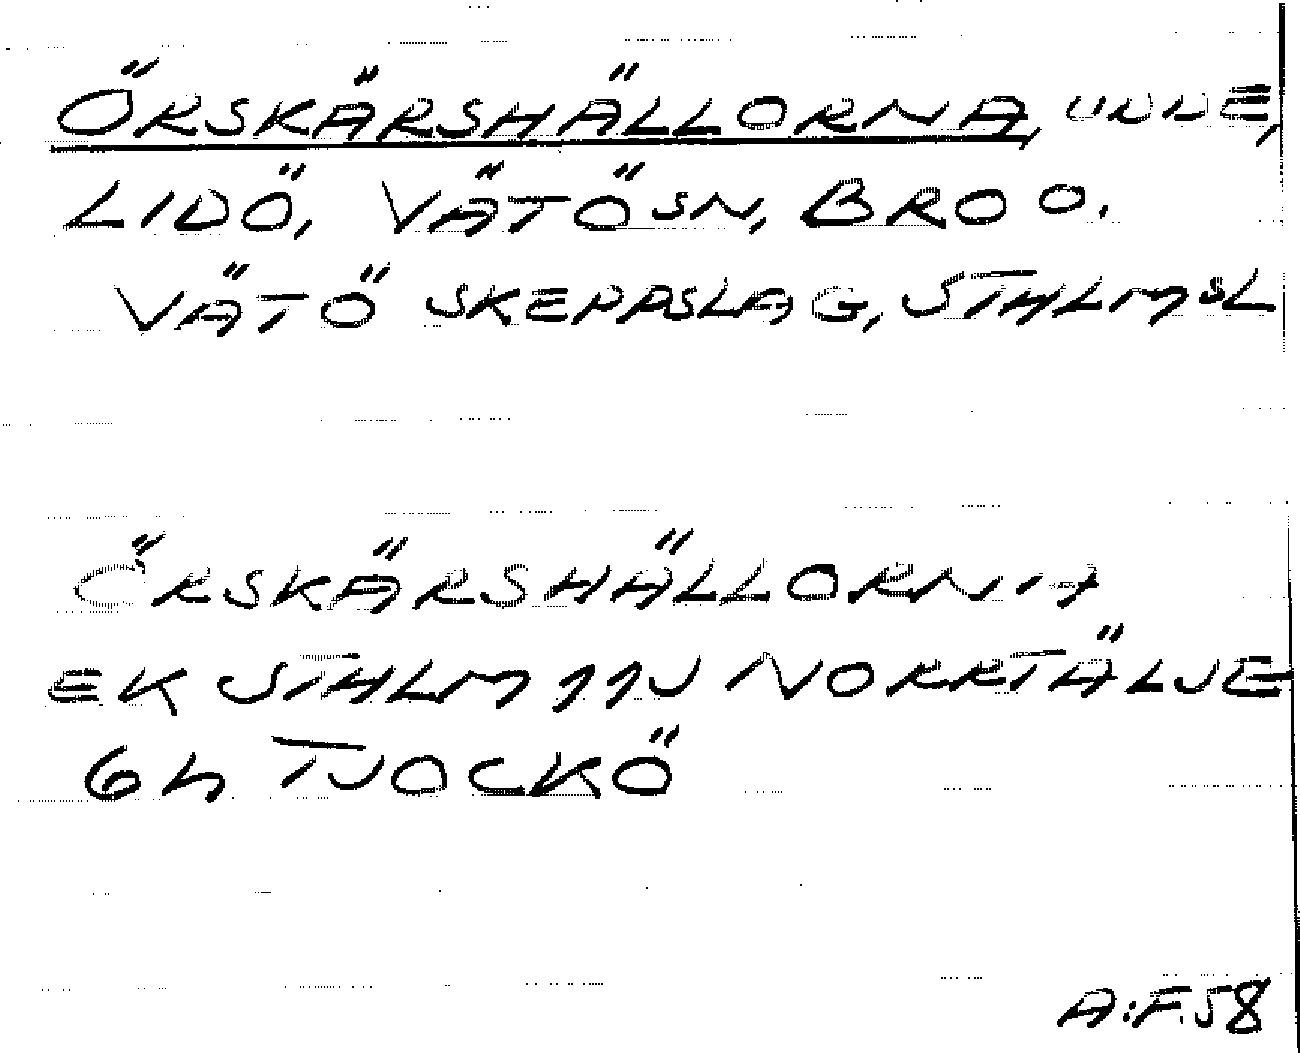 ÖRSKÄRSHÄLLORNA, UNDE,
LIDÖ, VÄTÖ SN, BRO O.
VÄTÖ SKEPPSLAG, STHLMSL
ÖRSKÄRSHÄLLORNA
EK STHLM 11J NORRTÄLJE
6h TJOCKÖ
A:F.58